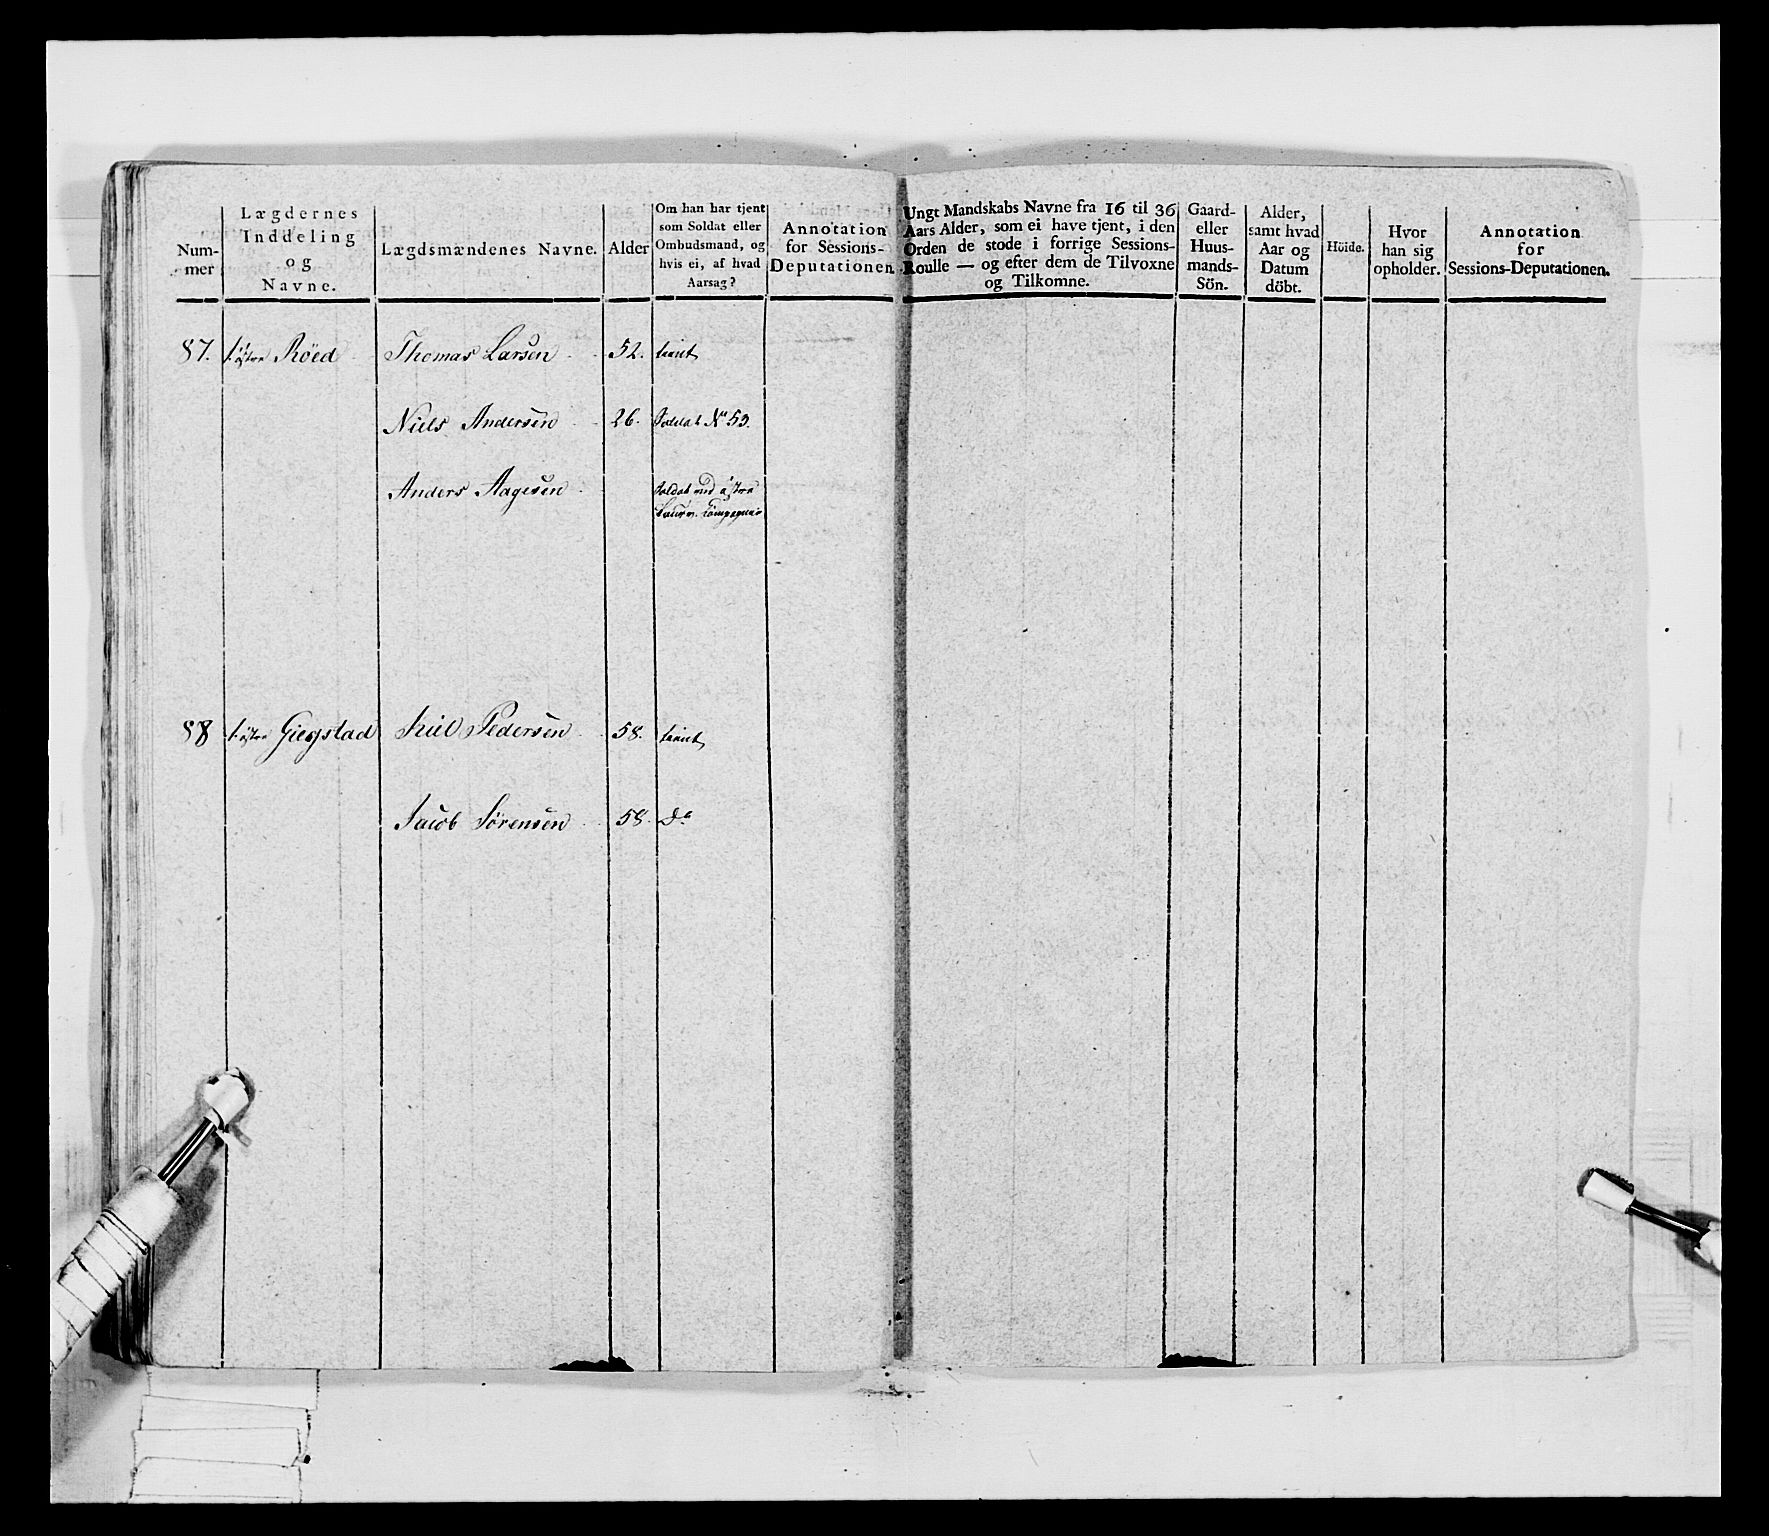 Num-
mer
Lægdernes
Inddeling
og
Navne.
Lægdsmændenes Navne.
Alder
Om han har tjent
som Soldat eller
Ombudsmand, og
hvis ei, af hvad
Aarsag?
Annotation
for Sessions-
Deputationen.
Ungt Mandskabs Navne fra 16 til 36
Aars Alder, som ei have tjent, i den
Orden de stode i forrige Sessions-
Roulle — og efter dem de Tilvoxne
og Tilkomne.
Gaard-
eller
Huus-
mands-
Sön.
Alder,
samt hvad
Aar og
Datum
döbt.
Höide.
Hvor
han sig
opholder.
Annotation
for
Sessions-Deputationen.
87. östre Röed Thomas Larsen 52. tient
Niels Andersen 26. Soldat No 53.
Anders Aagesen Soldat ved östre
88 östre Giegstad Pedersen 58. tient
Jacob Sörensen 58. Do